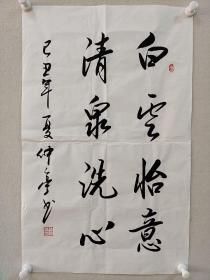 白云怡意
清泉洗心
己丑年夏仲亭书